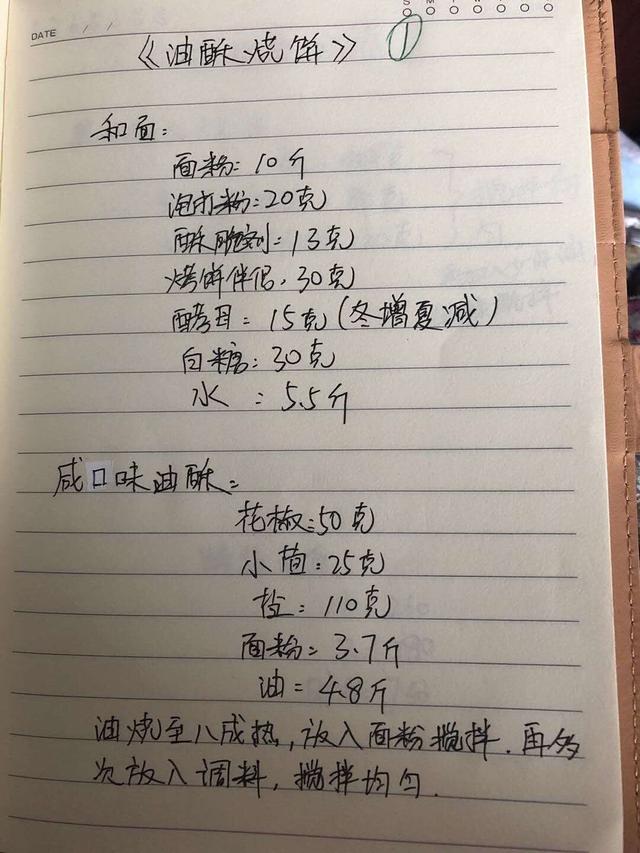 DATE / /
S M T W T F S
《油酥烧饼》 ①
和面:
面粉:10斤
泡打粉:20克
酥脆剂:13克
烤饼伴侣:30克
酵母:15克(冬增夏减)
白糖:30克
水:5.5斤
咸口味油酥:
花椒:50克
小茴:25克
盐:110克
面粉:3.7斤
油:4.8斤
油烧至八成热,放入面粉搅拌.再多
次放入调料,搅拌均匀.